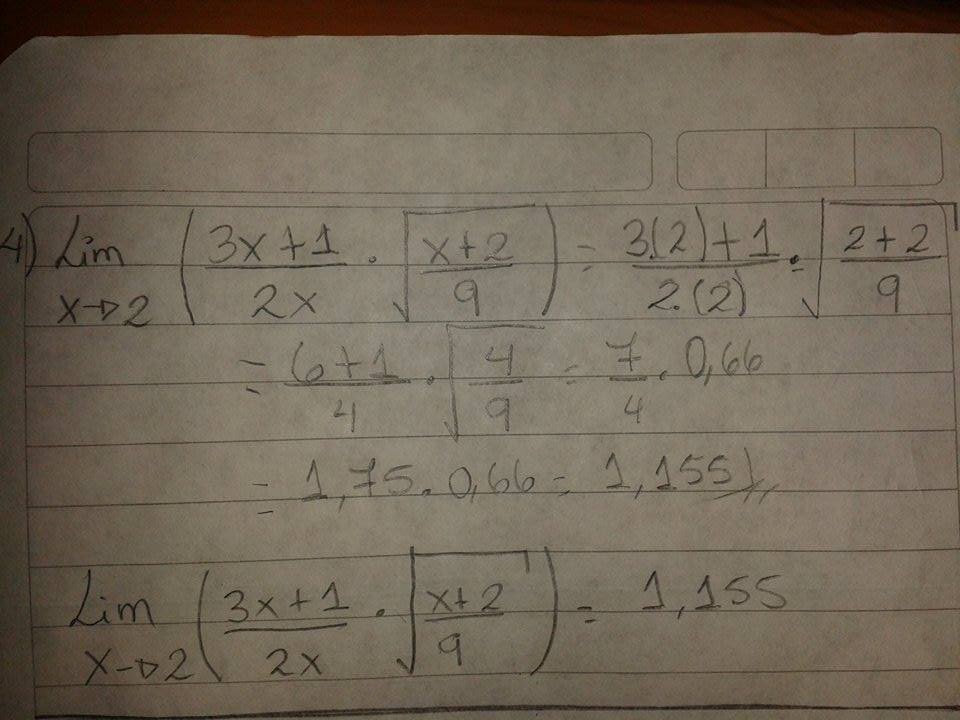 4) Lim x→2 ( (3x+1)/(2x) · √((x+2)/9) ) = (3.(2)+1)/(2.(2)) · √((2+2)/9)
= (6+1)/4 · √(4/9) = 7/4 · 0,66
= 1,75 · 0,66 = 1,155
Lim x→2 ( (3x+1)/(2x) · √((x+2)/9) ) = 1,155